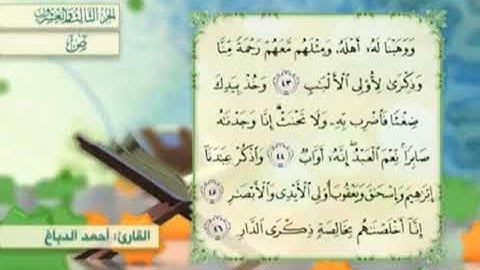 الجزء الثالث والعشرون
ص
وَوَهَبْنَا لَهُۥٓ أَهْلَهُۥ وَمِثْلَهُم مَّعَهُمْ رَحْمَةً مِّنَّا
وَذِكْرَىٰ لِأُو۟لِى ٱلْأَلْبَٰبِ ٤٣ وَخُذْ بِيَدِكَ
ضِغْثًا فَٱضْرِب بِّهِۦ وَلَا تَحْنَثْ إِنَّا وَجَدْنَٰهُ
صَابِرًا نِّعْمَ ٱلْعَبْدُ إِنَّهُۥٓ أَوَّابٌ ٤٤ وَٱذْكُرْ عِبَٰدَنَآ
إِبْرَٰهِيمَ وَإِسْحَٰقَ وَيَعْقُوبَ أُو۟لِى ٱلْأَيْدِى وَٱلْأَبْصَٰرِ ٤٥
إِنَّآ أَخْلَصْنَٰهُم بِخَالِصَةٍ ذِكْرَى ٱلدَّارِ ٤٦
القارئ: أحمد الدباغ